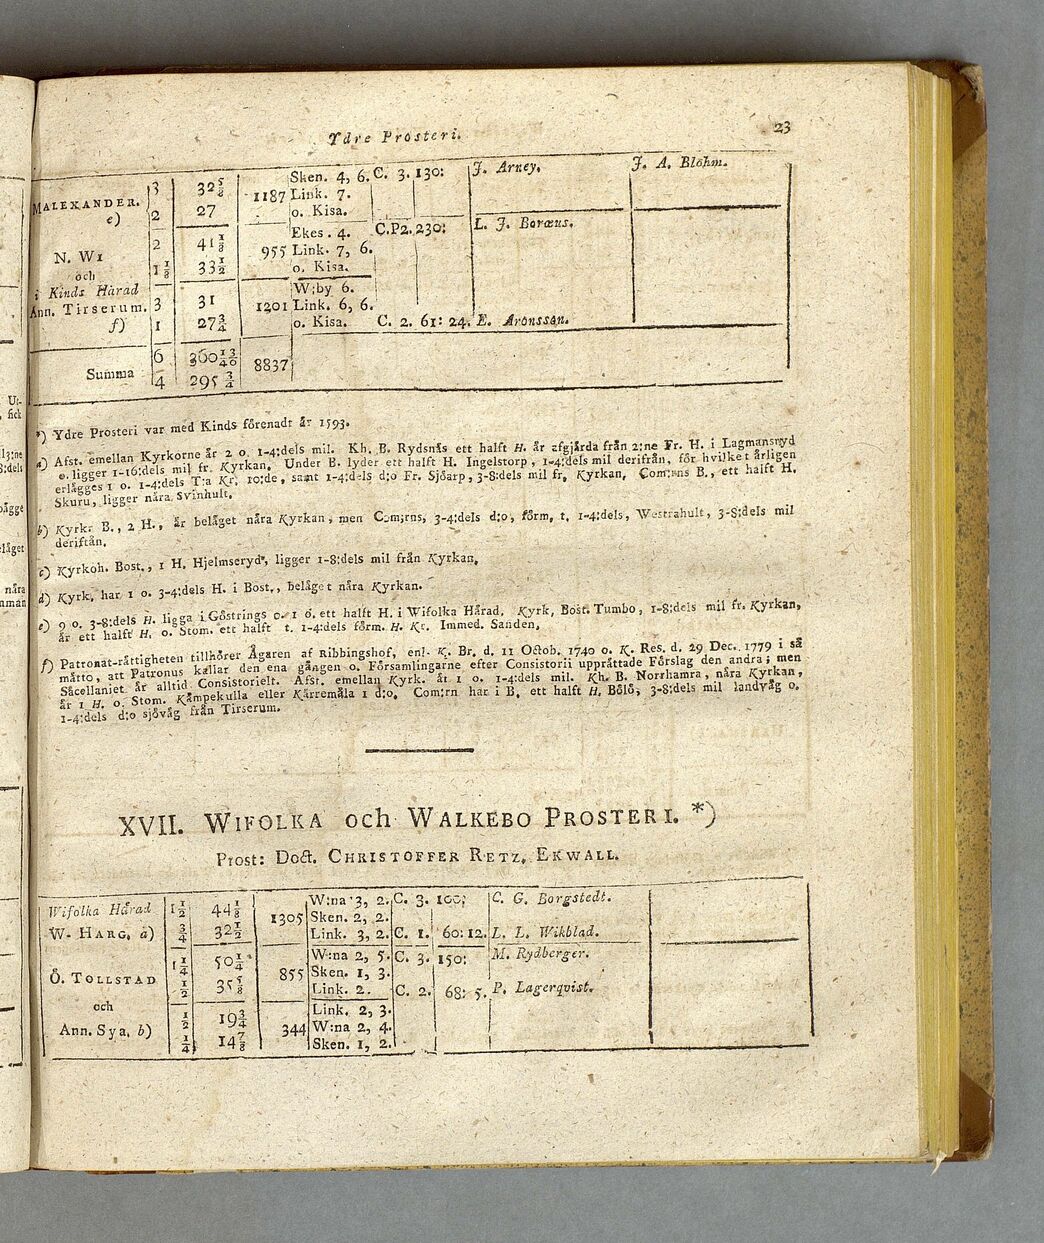 Ydre Prosteri. 23
MALEXANDER. 3 32 5/8 1187 Sken. 4, 6. C. 3. 130: J. Arney. J. A. Blöhm.
e) 2 27 Link. 7.
o. Kisa.
N. WI 2 41 1/8 955 Ekes. 4. C.P2. 230: L. J. Boræus.
och 1 1/8 33 1/2 Link. 7, 6.
i Kinds Härad o. Kisa.
Ann. Tirserum. 3 31 1201 W:by 6.
f) 1 27 3/4 Link. 6, 6.
o. Kisa. C. 2. 61: 24. E. Aronssøn.
Summa 6 360 13/40 8837
4 295 3/4
*) Ydre Prosteri var med Kinds förenadt år 1593.
a) Afst. emellan Kyrkorne är 2 o. 1-4:dels mil. Kh. B. Rydsnäs ett halft H. är afgjärda från 2:ne Fr. H. i Lagmansryd
o. ligger 1-16:dels mil fr. Kyrkan. Under B. lyder ett halft H. Ingelstorp, 1-4:dels mil derifrån, för hvilket årligen
erlägges 1 o. 1-4:dels T:a Kr. 10:de, samt 1-4:dels d:o Fr. Sjöarp, 3-8:dels mil fr, Kyrkan, Com:rns B., ett halft H.
Skuru, ligger nära Svinhult.
b) Kyrkr B., 2 H., är beläget nära Kyrkan, men Com:rns, 3-4:dels d:o, förm, t. 1-4:dels, Westrahult, 3-8:dels mil
derifrån.
c) Kyrkoh. Bost., 1 H. Hjelmseryd, ligger 1-8:dels mil från Kyrkan,
d) Kyrk, har 1 o. 3-4:dels H. i Bost., beläget nära Kyrkan.
e) 9 o. 3-8:dels H. ligga i Göstrings o. 1 o. ett halft H. i Wifolka Härad, Kyrk, Bost. Tumbo, 1-8:dels mil fr. Kyrkan,
är ett halft H, o. Stom. ett halft t. 1-4:dels förm. H. Kr. Immed. Sanden,
f) Patronat-rättigheten tillhörer Ägaren af Ribbingshof, enl. K. Br. d. 11 Octob. 1740 o. K. Res. d. 29 Dec. 1779 i så
måtto, att Patronus kallar den ena gången o. Församlingarne efter Consistorii upprättade Förslag den andra; men
Sacellaniet är alltid Consistorielt. Afst. emellan Kyrk. är 1 o. 1-4:dels mil. Kh. B. Norrhamra, nära Kyrkan,
är 1 H. o. Stom. Kämpekulla eller Kärremåla 1 d:o, Com:rn har i B, ett halft H, Bölö, 3-8:dels mil landväg o.
1-4:dels d:o sjöväg från Tirserum.
XVII. WIFOLKA och WALKEBO PROSTERI. *)
Prost: Doct. CHRISTOFFER RETZ, EKWALL.
Wifolka Härad 1 1/2 44 1/8 1305 W:na 3, 2. C. 3. 100; C. G. Borgstedt.
W. HARG, a) 3/4 32 1/2 Sken. 2, 2.
Link. 3, 2. C. 1. 60: 12. L. L. Wikblad.
Ö. TOLLSTAD 1 1/4 50 1/4 855 W:na 2, 5. C. 3. 150: M. Rydberger.
1/2 35 5/8 Sken. 1, 3.
Link. 2. C. 2. 68: 5. P. Lagerqvist.
och 1/2 19 3/4 344 Link. 2, 3.
Ann. Sya, b) 1/4 14 7/8 W:na 2, 4.
Sken. 1, 2.